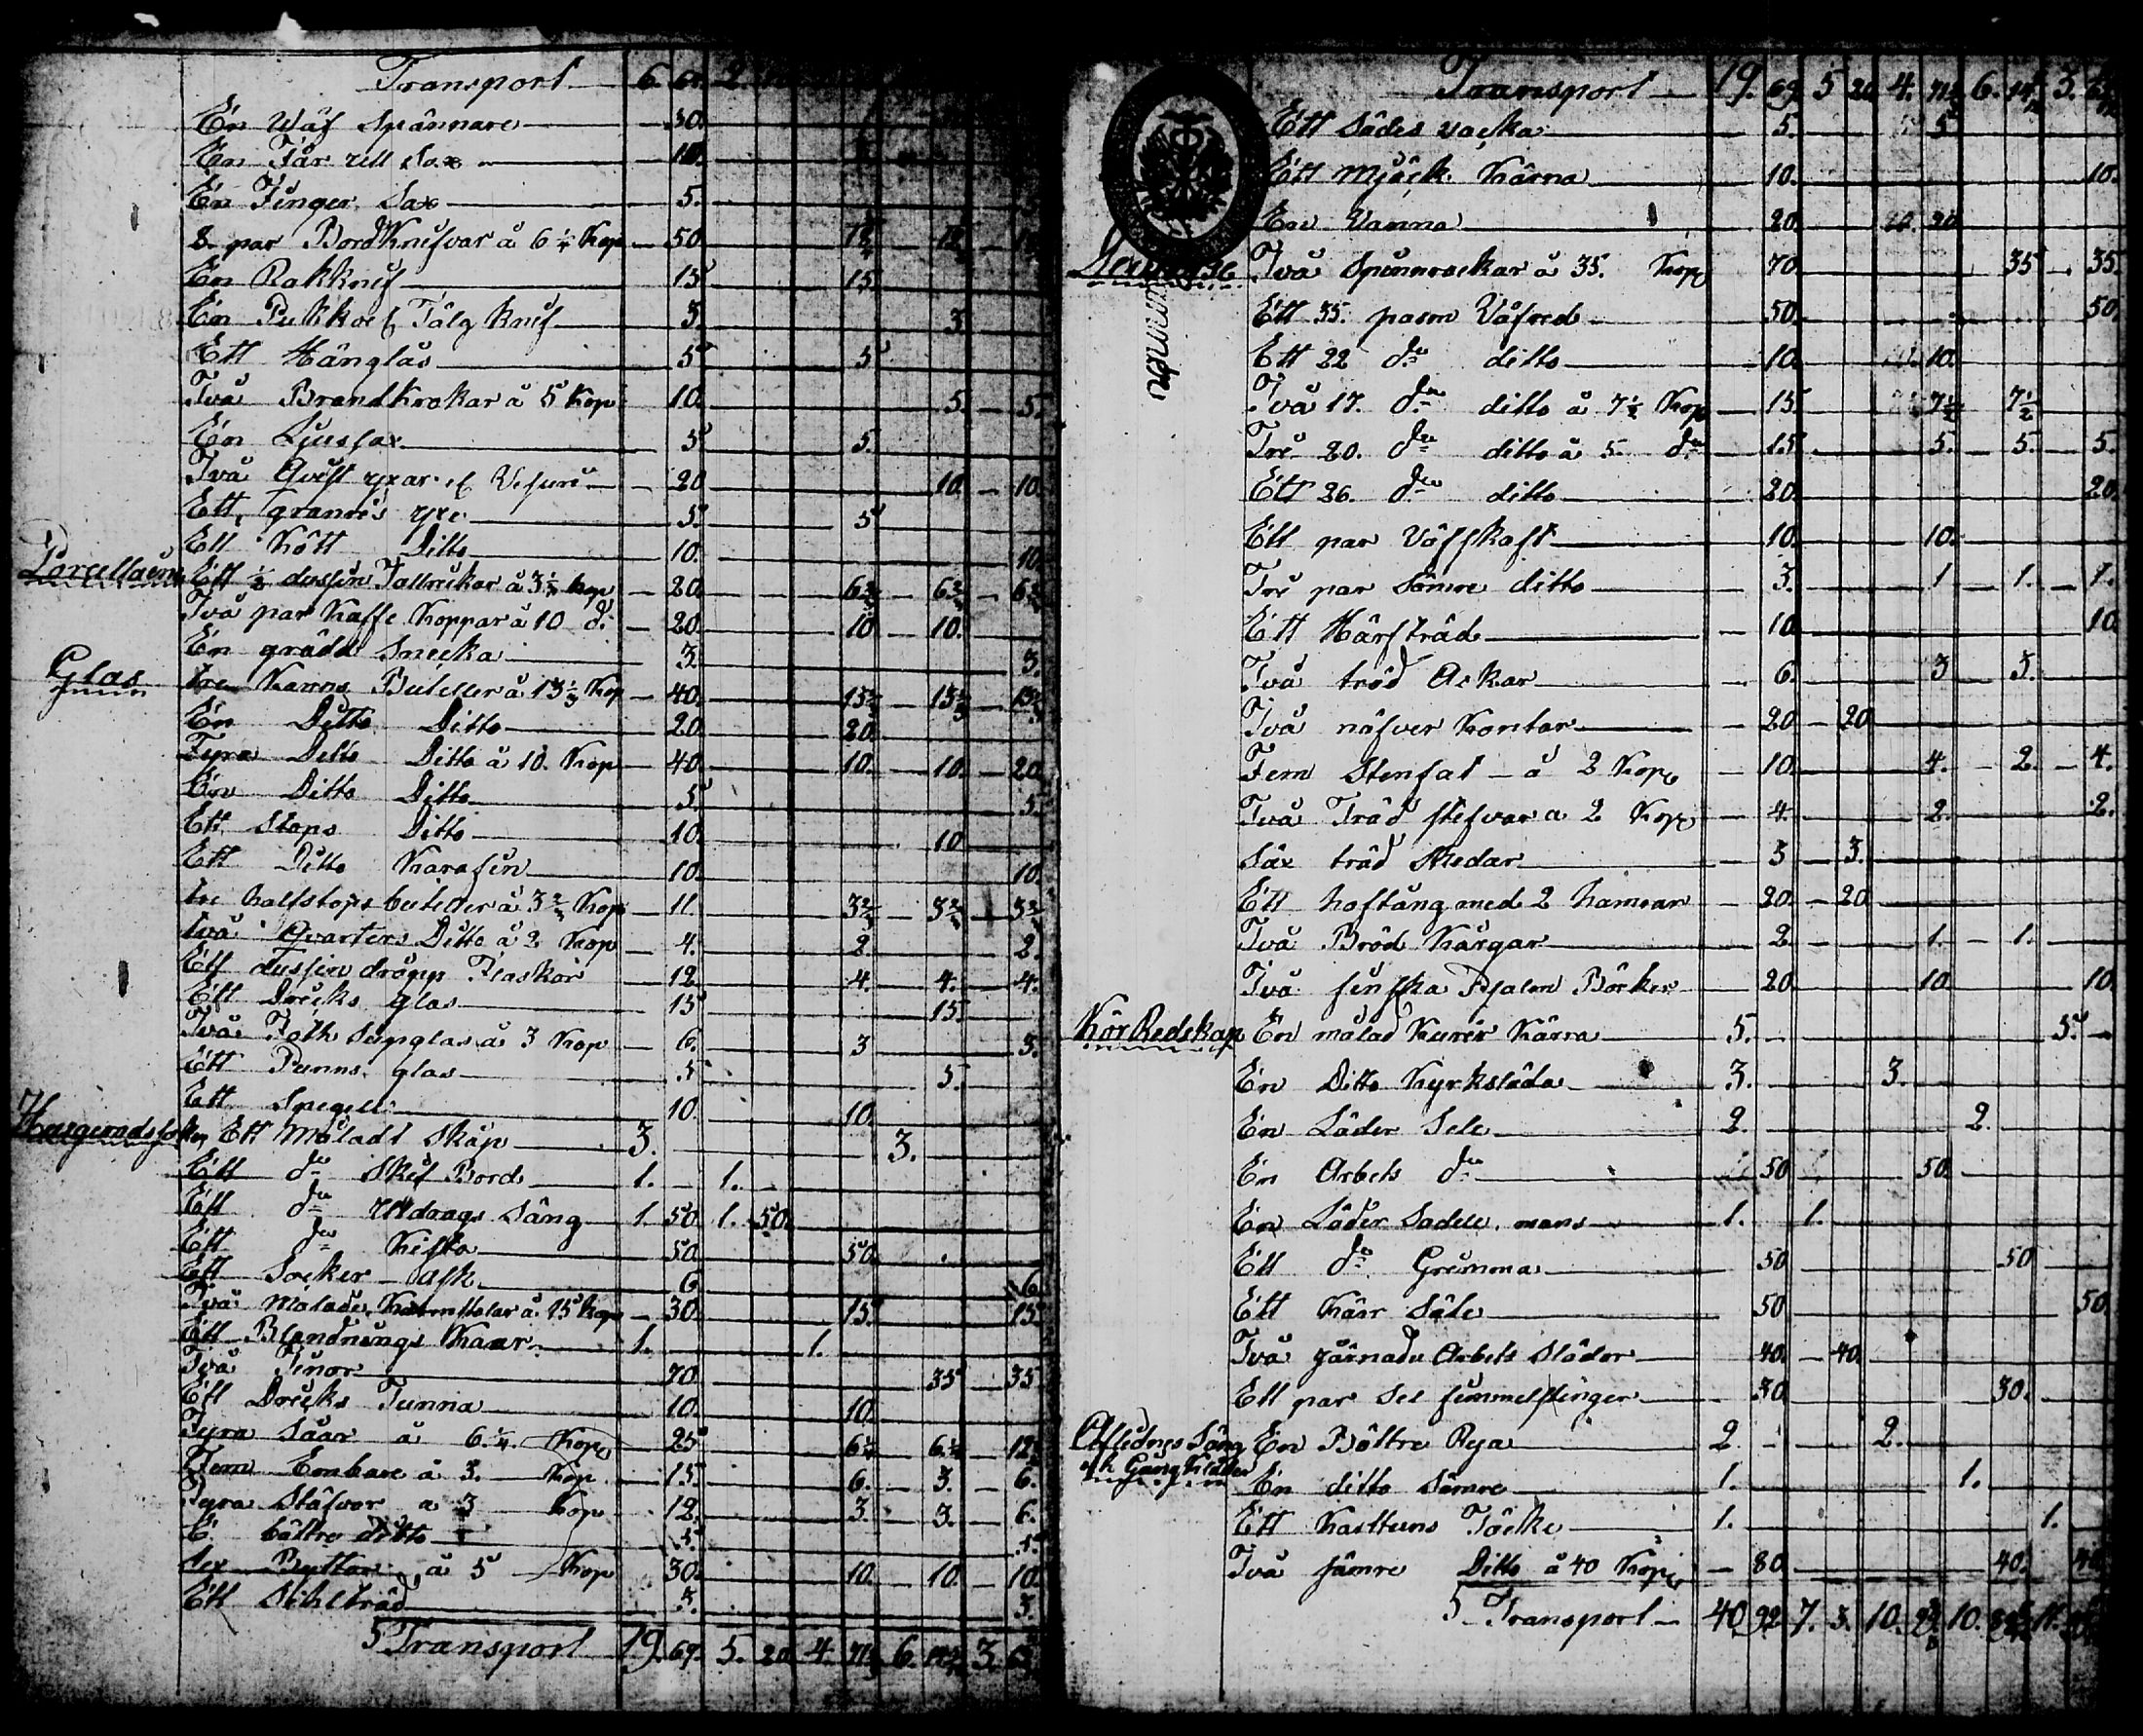 Transport 6. 67. 2.
En Wäf Spännare 30.
En Får ull Sax 10.
En Finger Sax 5.
8. par BordKnifvar à 6 1/4 Kop 50. 12 1/2 12 1/2
En Rakknif 15 15
En Pukko Tälg knif 3. 3
Ett Hänglås 5 5
Två Brandkrokar à 5 Kop 10. 5. 5.
En Ljussax 5 5.
Två Qvist yxar 20 10. 10.
Ett yxe 5. 5
Ett Kött Ditto 10. 10.
Porcellaine Ett 1/2 dussin Tallrickar à 3 1/3 kop 20. 6 2/3 6 2/3 6 2/3
Två par Kaffe Koppar à 10 do 20. 10 10.
En grädd Snecka 3. 3.
Glas tre Kanns Buteller à 13 1/3 Kop 40. 13 1/3 13 1/3 13 1/3
En Ditto Ditto 20. 20.
Fyra Ditto Ditto à 10. Kop 40. 10. 10. 20.
En Ditto Ditto 5 5.
Ett Stops Ditto 10. 10
Ett Ditto Karafin 10. 10.
tre halfstops buteller à 3 2/3 Kop 11. 3 2/3 3 2/3 3 2/3
två Qvarters Ditto à 2 Kop 4. 2. 2.
Ett dussin dropp Flaskor 12. 4. 4. 4.
Ett Dricks glas 15 15.
Två Foth Supglas à 3 Kop 6. 3 3.
Ett Punns glas 5 5.
Ett Spegell 10. 10.
Husgerådssaker Ett Måladt Skåp 3. 3.
Ett do Skif Bord 1. 1.
Ett do Utdrags Säng 1. 50. 1. 50.
Ett do Kista 50. 50.
Ett Socker Ask 6 6
Två Målade Karmstolar à 15 Kop 30. 15. 15.
Ett Blandnings Kaar 1. 1.
Två Tinor 70. 35 35
Ett Dricks Tunna 10. 10.
Fyra Såar à 6. 1/4. Kop 25 6 1/4 6 1/4 12 1/2
Fem Embare à 3. Kop 15 6. 3. 6.
Fyra Stäfvor à 3 Kop 12. 3. 3. 6.
E. bättre ditto 5 5.
Sex Byttor à 5 Kop 30. 10. 10. 10.
Ett Sihlträd 3. 3.
Transport 19. 69. 5. 20. 4. 6. 3.
Transport 19. 69. 5 20. 4. 6. 3.
Ett Sädes vacka 5. 5
Ett Mjöck Kärna 10. 10.
En Vanna 20. 20
Två Spinnrockar à 35. Kop 70. 35 35.
Ett 35. pasm Väfred 50. 50.
Ett 22 do ditto 10. 10.
Två 17. do ditto à 7 1/2 Kop 15. 7 1/2 7 1/2
Tre 20. do ditto à 5. do 15 5. 5. 5.
Ett 26. do ditto 20. 20.
Ett par Väfskaft 10. 10.
Tre par Sämre ditto 3. 1 1. 1.
Ett Härfträd 10. 10.
Två träd Askar 6. 3 3.
Två näfver Kontar 20 20
Fem Stenfat à 2 Kop 10. 4. 2. 4.
Två Träd stefvar à 2 Kop 4. 2. 2.
Säx träd Skedar 3 3.
Ett hoftång med 2 hamrar 20. 20
Två Bröd Kårgar 2. 1. 1.
Två finska Psalm Böcker 20 10 10
Kör Redskap En målad Kurir Kärra 5. 5.
En Ditto Kyrksläda 3. 3.
En Läder Sele 2. 2.
En Arbets do 50 50.
En Läder Sadell mans 1. 1.
Ett do Grimma 50 50
Ett Kärr Säle 50 50.
Två järnade Arbets Slädor 40. 40.
Ett par Sel 30 30.
Aflidnes Säng och Gångkläder En Bättre Rya 2. 2.
En ditto Sämre 1. 1.
Ett Kattuns Täcke 1. 1.
Två sämre Ditto à 40 Kop 80 40. 40
Transport 40 92 7. 3. 10. 10. 11.